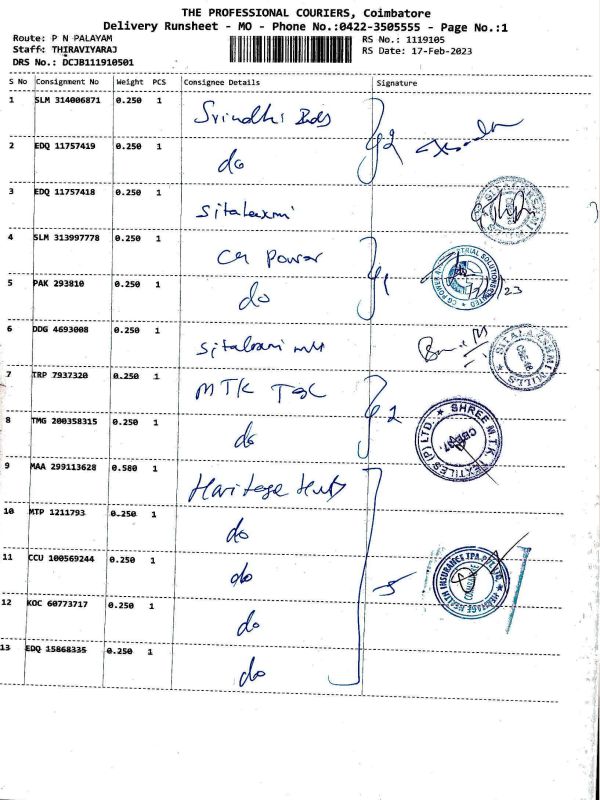 THE PROFESSIONAL COURIERS, Coimbatore
Delivery Runsheet - MO - Phone No.:0422-3505555 - Page No.:1
Route: P N PALAYAM
RS No.: 1119105
Staff: THIRAVIYARAJ
RS Date: 17-Feb-2023
DRS No.: DCJB111910501
S No Consignment No Weight PCS Consignee Details Signature
1 SLM 314006871 0.250 1 Srindhi
2 EDQ 11757419 0.250 1 do
3 EDQ 11757418 0.250 1 Sitalaxmi
4 SLM 313997778 0.250 1 CG Power
5 PAK 293810 0.250 1 do
6 DDG 4693008 0.250 1 Sitalaxmi mill
7 TRP 7937320 0.250 1 MTK Tex
8 TMG 200358315 0.250 1 do
SHREE M.T.K. TEXTILES (P) LTD.
9 MAA 299113628 0.580 1 Haritage
10 MTP 1211793 0.250 1 do
11 CCU 100569244 0.250 1 do 5
HERITAGE HEALTH INSURANCE TPA PVT LTD
12 KOC 60773717 0.250 1 do
13 EDQ 15868335 0.250 1 do